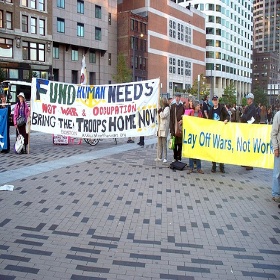 FUND HUMAN NEEDS
NOT WAR & OCCUPATION
BRING THE TROOPS HOME NOW!
Lay Off Wars, Not Wor